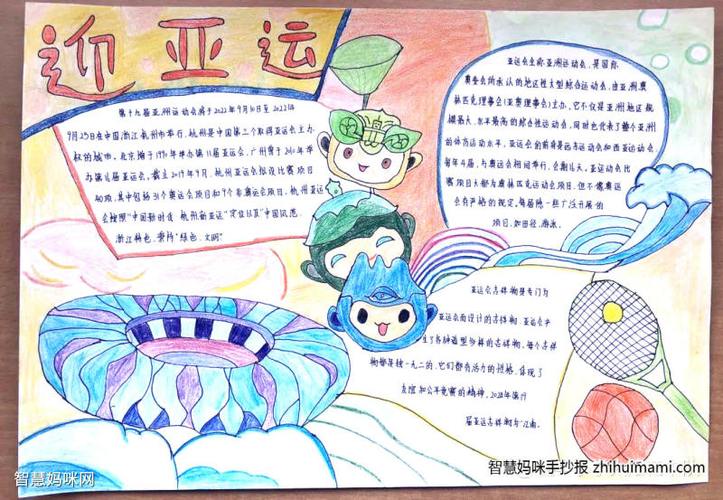 迎亚运
第十九届亚洲运动会将于2022年9月10日至2022年
9月25日在中国浙江杭州市举行,杭州是中国第三个取得亚运会主办
权的城市,北京曾于1990年举办第11届亚运会,广州曾于2010年举
办第16届亚运会,截立2019年9月,杭州亚运会拟设比赛项目
40项,其中包括31个奥运会项目和9个非奥运会项目,杭州亚运
会按照"中国新时代 杭州新亚运"定位以及"中国风范
浙江特色 "绿色、文明"
亚运会全称亚洲运动会,是国际
奥委会所承认的地区性大型综合运动会,由亚洲奥
林匹克理事会(亚奥理事会)主办,它不仅是亚洲地区规
模最大、水平最高的综合性运动会,同时也代表了整个亚洲
的体育运动水平,亚运会的前身是远东运动会和西亚运动会,
每年4届,与奥运会相间举行,会期几天,亚运动会比
赛项目大都为奥林匹克运动会项目,但不像奥运
会有严格的规定,每届除一些广泛开展的
项目,如田径、游泳,
亚运会吉祥物是专门为
亚运会而设计的吉祥物,亚运会产
生了各种造型纷样的吉祥物,每个吉祥
物都是独一无二的,它们都有活力的性格,体现了
友谊和公平竞赛的精神,
届亚运吉祥物为"江南
智慧妈咪手抄报 zhihuimami.com
智慧妈咪网